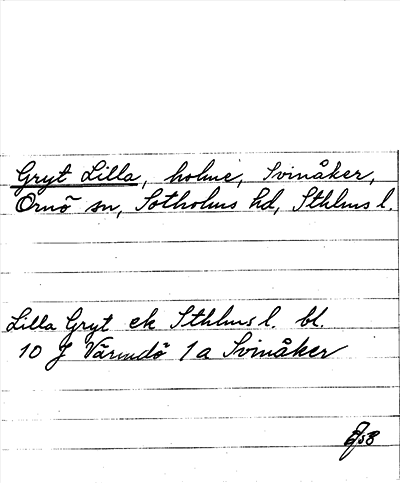 Gryt Lilla, holme, Svinåker,
Ornö sn, Sotholms hd, Sthlms l.
Lilla Gryt ek Sthlms l. bl.
10 J Värmdö 1a Svinåker